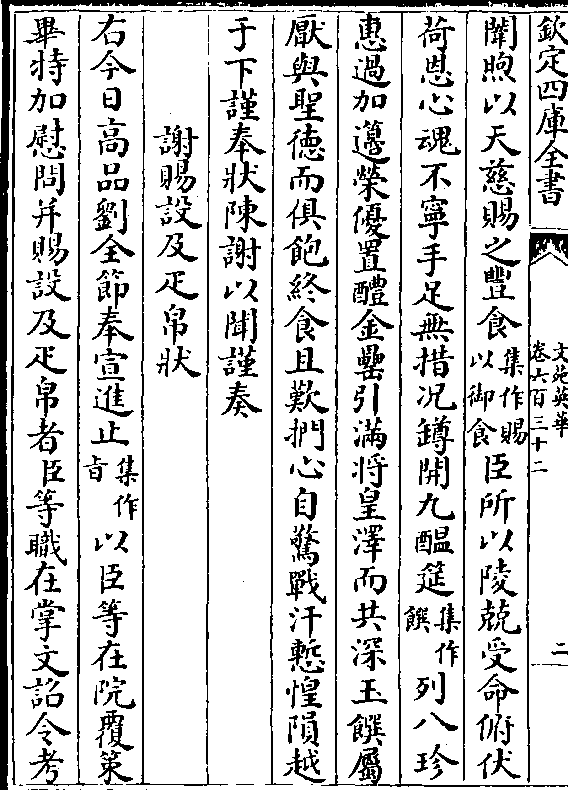 欽定四庫全書
文苑英華
卷六百三十二
二
闈煦以天慈賜之豐食集作賜以御食臣所以陵兢受命俯伏
荷恩心魂不寧手足無措况罇開九醖筵集作饌列八珍
惠過加籩榮優置醴金罍引滿將皇澤而共深玉饌屬
厭與聖德而俱飽終食且歎捫心自驚戰汗慙惶隕越
于下謹奉狀陳謝以聞謹奏
謝賜設及疋帛狀
右今日高品劉全節奉宣進止集作旨以臣等在院覆策
畢特加慰問并賜設及疋帛者臣等職在掌文詔令考